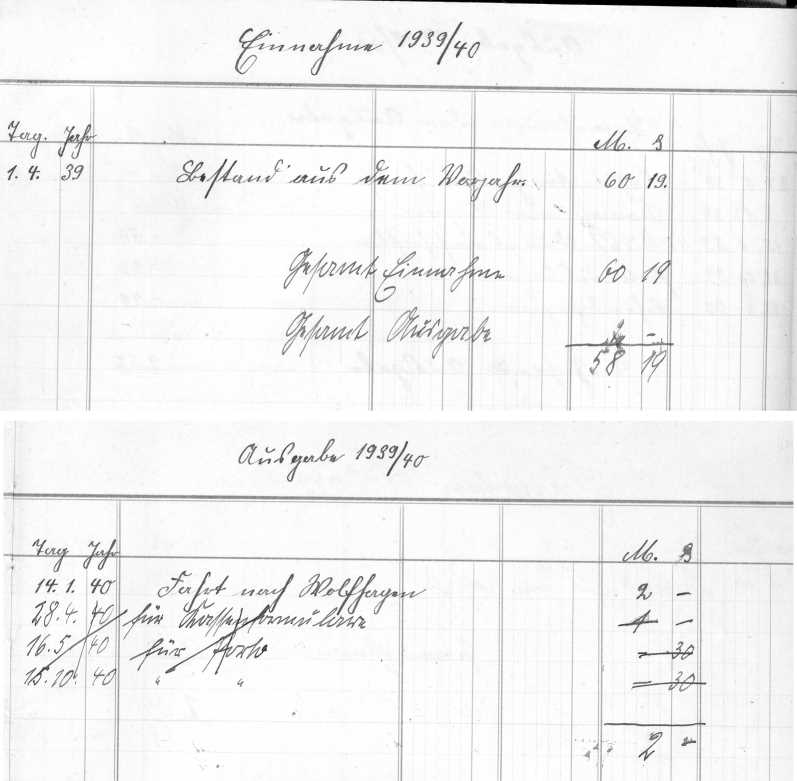 Einnahme 1939/40
Tag. Jahr M. ₰
1. 4. 39 Bestand aus dem Vorjahr. 60 19.
Gesamt Einnahme 60 19
Gesamt Ausgabe 2 –
58 19
Ausgabe 1939/40
Tag Jahr M. ₰
14. 1. 40 Fahrt nach Wolfhagen 2 –
28. 4. 40 für Kassenformulare 1 –
16. 5 40 für Porto – 30
15. 10. 40 " " = 30
2 –